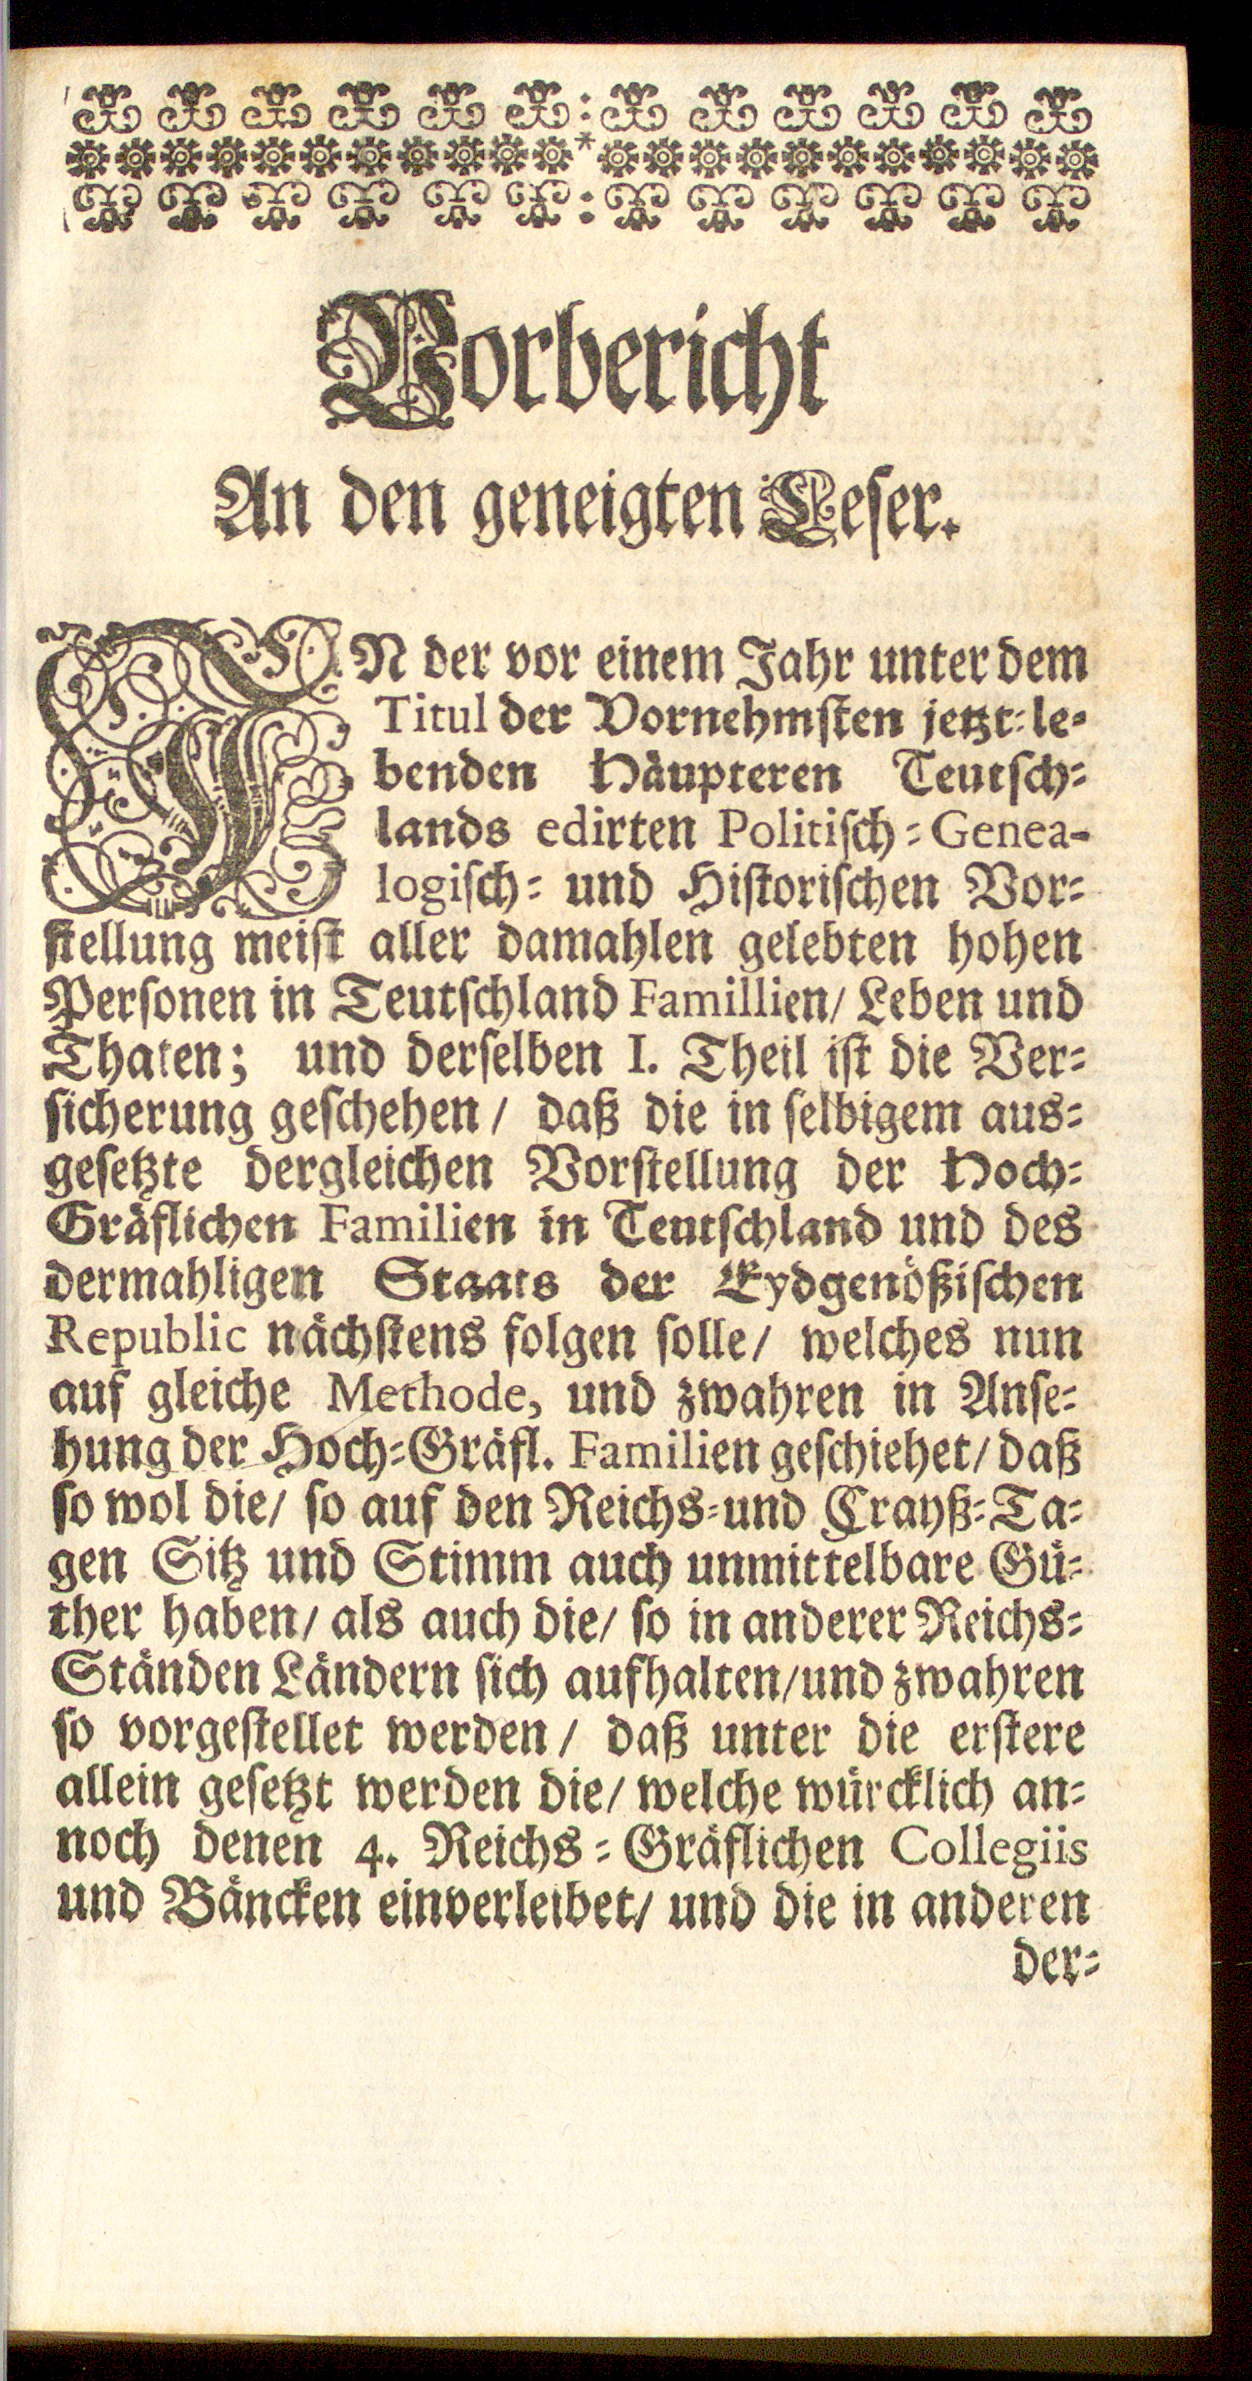 Vorbericht
An den geneigten Leser.
IN der vor einem Jahr unter dem
Titul der Vornehmsten jetzt-le-
benden Häupteren Teutsch-
lands edirten Politisch-Genea-
logisch- und Historischen Vor-
stellung meist aller damahlen gelebten hohen
Personen in Teutschland Famillien/ Leben und
Thaten; und derselben I. Theil ist die Ver-
sicherung geschehen / daß die in selbigem aus-
gesetzte dergleichen Vorstellung der Hoch-
Gräflichen Familien in Teutschland und des
dermahligen Staats der Eydgenößischen
Republic nächstens folgen solle/ welches nun
auf gleiche Methode, und zwahren in Anse-
hung der Hoch-Gräfl. Familien geschiehet/ daß
so wol die/ so auf den Reichs-und Crayß-Ta-
gen Sitz und Stimm auch unmittelbare Gü-
ther haben/ als auch die/ so in anderer Reichs-
Ständen Ländern sich aufhalten/und zwahren
so vorgestellet werden / daß unter die erstere
allein gesetzt werden die/ welche würcklich an-
noch denen 4. Reichs-Gräflichen Collegiis
und Bäncken einverleibet/ und die in anderen
der-